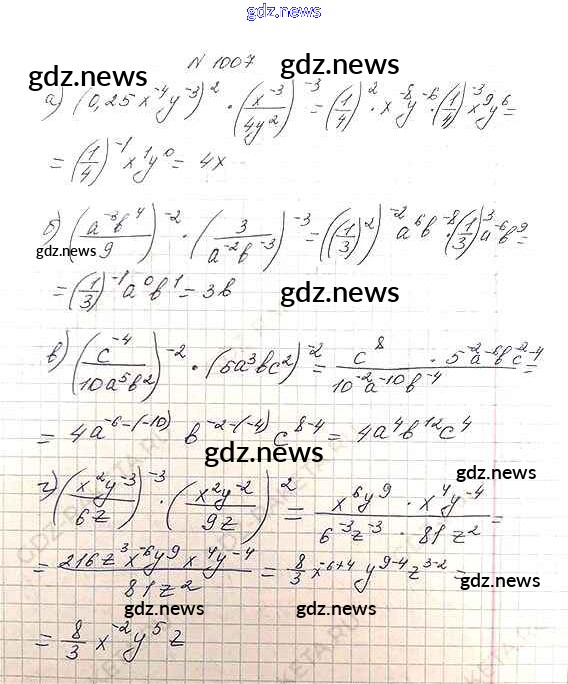 gdz.news
N 1007
gdz.news gdz.news
а) (0,25x⁻⁴y⁻³)² · (x⁻³/4y²)⁻³ = (1/4)² · x⁻⁸y⁻⁶ · (1/4)⁻³x⁹y⁶ =
= (1/4)⁻¹x¹y⁰ = 4x
б) (a⁻³b⁴/9)⁻² · (3/a⁻²b⁻³)⁻³ = ((1/3)²)⁻² a⁶b⁻⁸ · (1/3)³a⁻⁶b⁹ =
gdz.news
= (1/3)⁻¹a⁰b¹ = 3b
gdz.news
в) (c⁻⁴/10a⁵b²)⁻² · (5a³bc²)⁻² = c⁸ · 5⁻²a⁻⁶b⁻²c⁻⁴/10⁻²a⁻¹⁰b⁻⁴ =
= 4a⁻⁶⁻⁽⁻¹⁰⁾ b⁻²⁻⁽⁻⁴⁾ c⁸⁻⁴ = 4a⁴b¹²c⁴
gdz.news
gdz.news
г) (x²y⁻³/6z)⁻³ · (x²y⁻²/9z)² = x⁶y⁹ · x⁴y⁻⁴/6⁻³z⁻³ · 81z² =
gdz.news
= 216z³x⁻⁶y⁹x⁴y⁻⁴/81z² = 8/3 x⁻⁶⁺⁴ y⁹⁻⁴z³⁻² =
gdz.news gdz.news gdz.news
= 8/3 x⁻²y⁵z